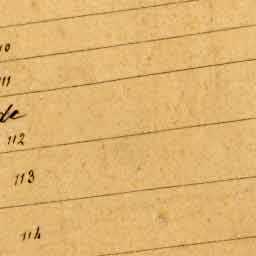 10
111
de
112
113
114